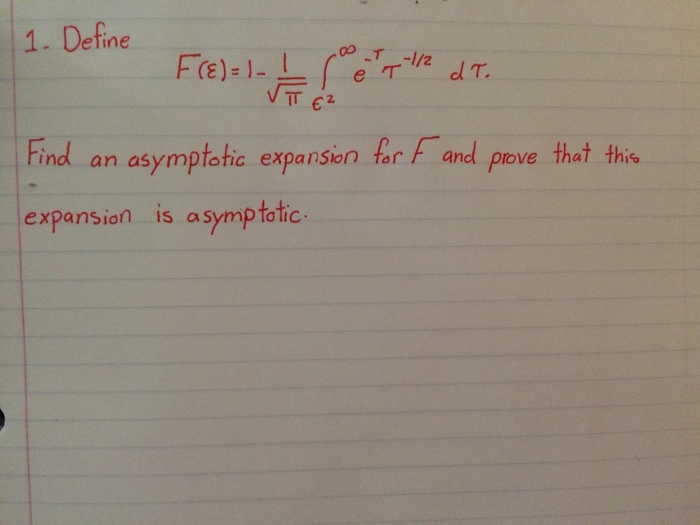 1. Define
F(ε) = 1 - 1/√π ∫_{ε²}^{∞} e^{-τ} τ^{-1/2} dτ.
Find an asymptotic expansion for F and prove that this
expansion is asymptotic.